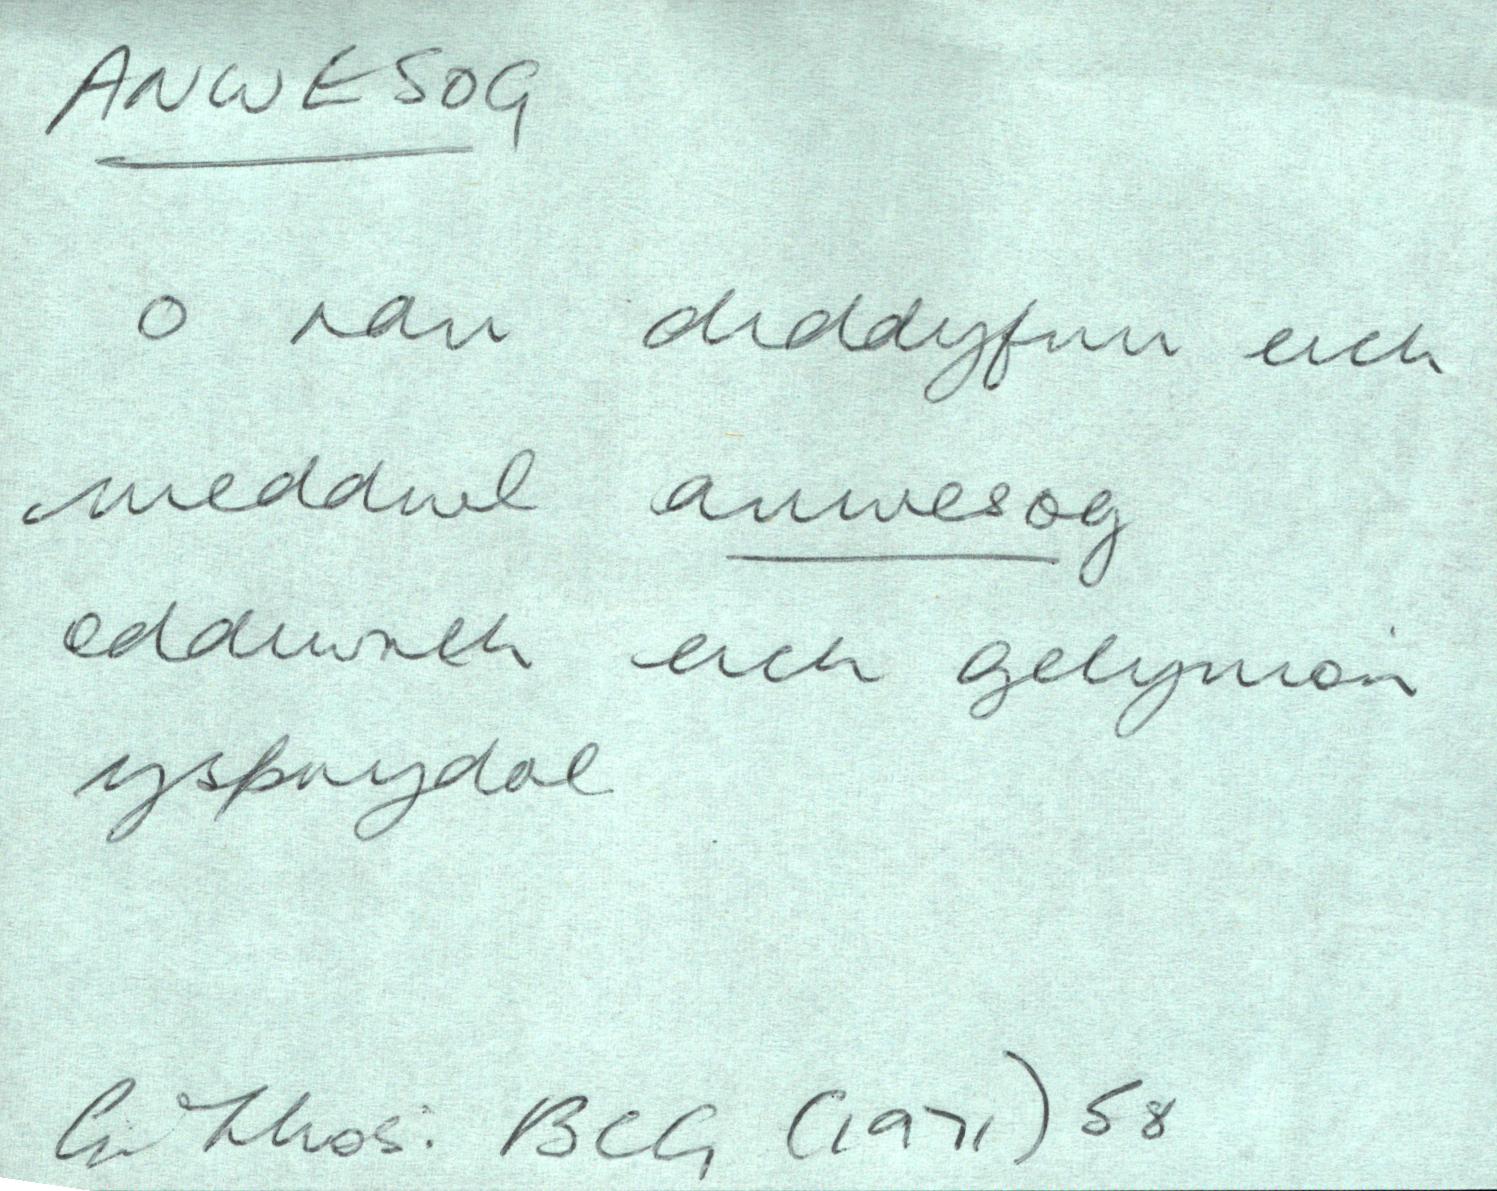 ANWESOG
o ran diddyfnu eich
meddwl anwesog
oddiwrth eich gelynion
ysprydol
Gw Thos: BCG (1971) 58